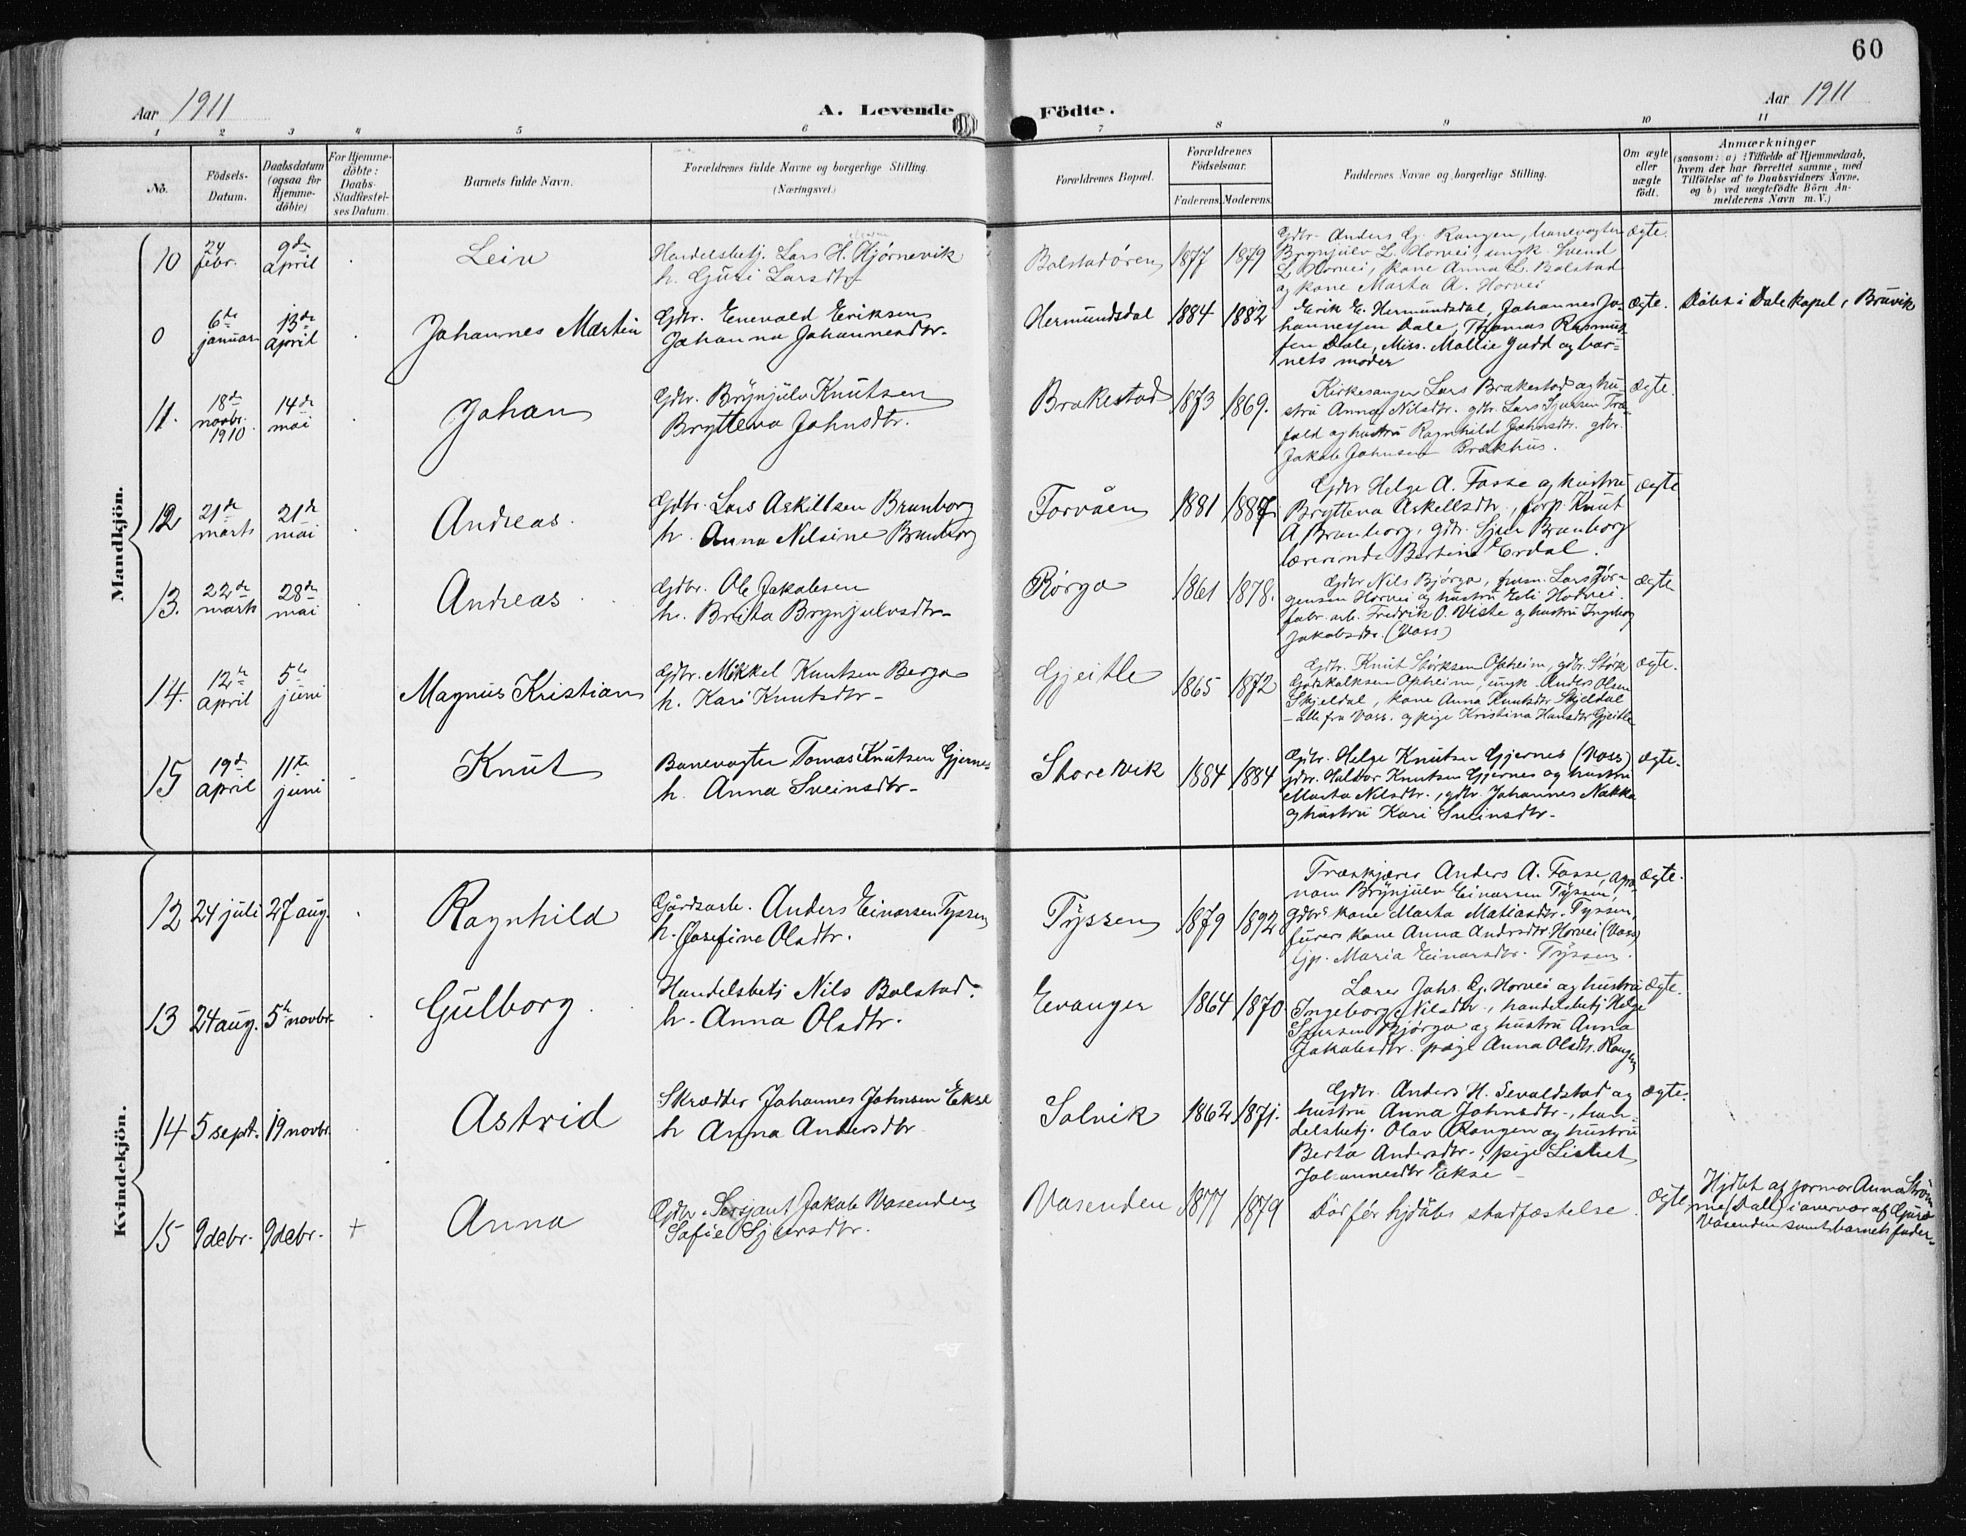 60
Aar 1911
A. Levende Födte.
Aar 1911
1 2 3 4 5 6 7 8 9 10 11
No.
Födsels-
Datum.
Daabsdatum
(ogsaa for
Hjemme-
döbte)
For Hjemme-
döbte:
Daabs-
Stadfæstel-
ses Datum.
Barnets fulde Navn.
Forældrenes fulde Navne og borgerlige Stilling.
(Næringsvei.)
Forældrenes Bopæl.
Forældrenes
Födselsaar.
Faderens. Moderens.
Faddernes Navne og borgerlige Stilling.
Om ægte
eller
uægte
födt.
Anmærkninger
(saasom: a) i Tilfælde af Hjemmedaab,
hvem der har forrettet samme, med
Tilföielse af to Daabsvidners Navne,
og b) ved uægtefödte Börn An-
melderens Navn m. V.)
Mandkjön.
10
24
febr.
9de
april
Leiv
Handelsbetj. Lars H. Hjørnevik
h. Guri Larsdtr
Bolstadøren
1877
1879
Gdbr. Anders G. Rangen, banevogter
Brynjulv L. Horvei, ungk. Svend
L Horvei, kone Anna L. Bolstad
og kone Marta A. Horvei
ægte.
0
6te
januar
13de
april
Johannes Martin
Gdbr. Enevald Eriksen
Johanna Johannesdtr.
Hermundsdal
1884
1882
Erik E. Hermundsdal, Johannes Jo-
hannessen Dale, Thomas Rasmus-
sen Dale, Miss. Mollie Judd og bar-
nets moder
ægte.
Døbt i Dale kapel, Bruvik
11.
18de
novbr.
1910
14de
mai
Johan
Gdbr. Brynjulv Knutsen
Brytteva Johnsdtr.
Brakestad
1873
1869.
Kirkesanger Lars Brakestad og hu-
stru Anna Nilsdtr. gdbr. Lars Sjursen Fad-
fald og hustru Ragnhild Johnsdtr. gdbr.
Jakob Johnsen Brækhus.
ægte.
12
21de
marts
21de
mai
Andreas.
Gdbr. Lars Askillsen Branborg
h. Anna Nilsine Branborg
Torvåen
1881
1887
Gdbr Helge A. Fosse og hustru
Brytteva Askellsdtr, forp. Knut
A Branborg, gdr. Sjur Branborg
lærerinde Bertine Erdal.
ægte
13.
22de
marts
28de
mai
Andreas
Gdbr. Ole Jakobsen
h. Brita Brynjulvsdtr.
Børge
1861
1878.
Gdbr Nils Bjørgo, husm. Lars Jør-
gensen Horvei og hustru Eli Horvei.
fabr. arb. Fredrik O. Viste og hustru Ingeborg
Jakobsdtr. (Voss)
ægte
14.
12te
april
5te
juni
Magnus Kristian
Gdbr. Mikkel Knutsen Bergo
h. Kari Knutsdtr.
Gjeitle
1865
1872
Gdbr. Knut Størksen Opheim, gdbr. Størk
Godskalksen Opheim, ungk. Anders Olsen
Skjeldal, kone Anna Knutsdtr Skjeldal
- alle fra Voss. og pige Kristina Hansdtr Gjeitle
ægte.
15
19de
april
11te
juni
Knut
Banevogter Tomas Knutsen Gjernes
h. Anna Sveinsdtr.
Storevik
1884
1884
Gdbr. Helge Knutsen Gjernes (Voss)
gdbr. Haldor Knutsen Gjernes og hustru
Marta Nilsdtr., gdbr. Johannes Nakke
og hustru Kari Sveinsdtr.
ægte.
Kvindekjön.
12
24 juli
27 aug.
Ragnhild
Gårdsarb. Anders Einarsen Tyssen
h. Josefine Olsdtr.
Tyssen
1879
1892
Træskjærer Anders A. Fosse,
Brynjulv Einarsen Tyssen,
gdbr kone Marta Matiasdtr. Tyssen,
furers kone Anna Andrsdtr Horvei (Voss)
tjp. Maria Einarsdtr. Tyssen.
ægte.
13
24 aug.
5te novbr.
Gulborg
Handelsbetj Nils Bolstad.
h. Anna Olsdtr.
Evanger
1864
1870
Lærer Johs. G. Horvei og hustru
Ingeborg Nilsdtr., handelsbetj Helge
Sjursen Bjørgo og hustru Anna
Jakobsdtr. pige Anna Olsdtr. Rangen
ægte.
14
5 sept.
19 novbr.
Astrid
Skrædder Johannes Johnsen Ekse
h Anna Andersdtr
Solvik
1862
1871.
Gdbr. Anders H. Sevaldstad og
hustru Anna Johnsdtr., han-
delsbetj. Olav Rangen og hustru
Berta Andersdtr., pige Lisbet
Johannesdtr Ekse
ægte.
15
9 debr.
9 debr.
+
Anna
Gdbr. Sersjant Jakob Vasenden
Sofie Sjursdtr.
Vasenden
1877
1879
Død før hjdåbs stadfæstelse
ægte
Hjdbt af jormor Anna Strøm-
me (Dall) i overvær af Guro
Vasenden samt barnets fader.